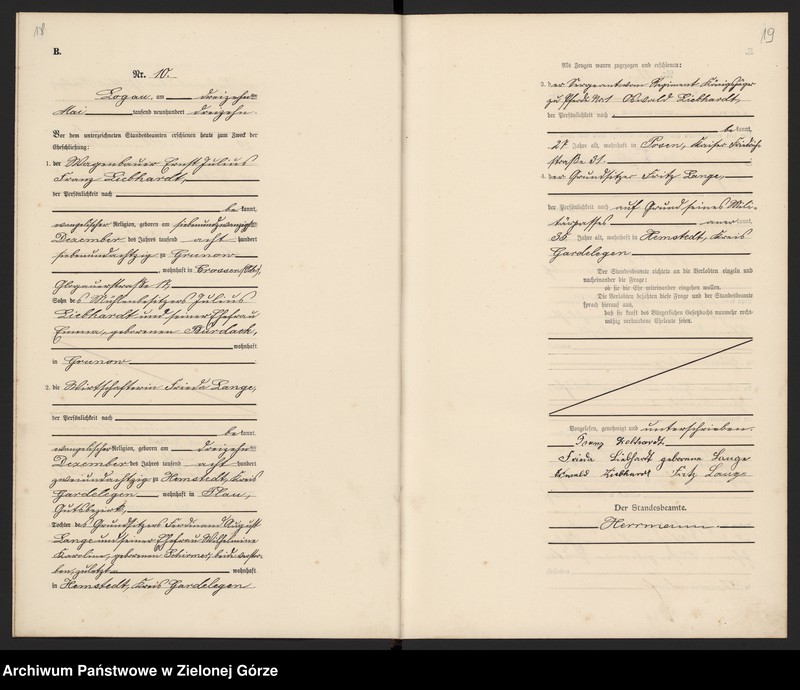 18
B.
Nr. 10.
Logau, am dreizehnten
Mai tausend neunhundert dreizehn.
Vor dem unterzeichneten Standesbeamten erschienen heute zum Zweck der
Eheschließung:
1. der Wagenbauer Ernst Julius
Franz Liebhardt,
der Persönlichkeit nach
be kannt,
evangelischer Religion, geboren am siebenundzwanzigsten
Dezember des Jahres tausend acht hundert
siebenundachtzig zu Grunow
, wohnhaft in Crossen (Oder),
Glogauerstraße
Sohn des Mühlenbesitzers Julius
Liebhardt und seiner Ehefrau
Emma, geborenen Burdack,
wohnhaft
in Grunow
2. die Wirtschafterin Frieda Lange,
der Persönlichkeit nach
be kannt,
evangelischer Religion, geboren am dreizehnten
Dezember des Jahres tausend acht hundert
zweiundachtzig zu Hemstedt, Kreis
Gardelegen, wohnhaft in Plau,
Gutsbezirk,
Tochter des Grundsitzers Ferdinand August
Lange und seiner Ehefrau Wilhelmine
Karoline, geborenen Schirmer, beide verstor-
ben, zuletzt wohnhaft
in Hemstedt, Kreis Gardelegen
19
Als Zeugen waren zugezogen und erschienen:
3. der Sergeant vom Regiment Königsjäger
zu Pferde Nr. 1 Oswald Liebhardt,
der Persönlichkeit nach
be kannt,
27 Jahre alt, wohnhaft in Posen, Kaiser Friedrich-
straße 31.
4. der Grundsitzer Fritz Lange,
der Persönlichkeit nach auf Grund seines Mili-
tärpasses aner kannt,
35 Jahre alt, wohnhaft in Hemstedt, Kreis
Gardelegen
Der Standesbeamte richtete an die Verlobten einzeln und
nacheinander die Frage:
ob sie die Ehe miteinander eingehen wollen.
Die Verlobten bejahten diese Frage und der Standesbeamte
sprach hierauf aus,
daß sie kraft des Bürgerlichen Gesetzbuchs nunmehr recht-
mäßig verbundene Eheleute seien.
Vorgelesen, genehmigt und unterschrieben.
Franz Liebhardt
Frieda Liebhardt geborene Lange
Oswald Liebhardt Fritz Lange
Der Standesbeamte.
Herrmann.
Archiwum Państwowe w Zielonej Górze